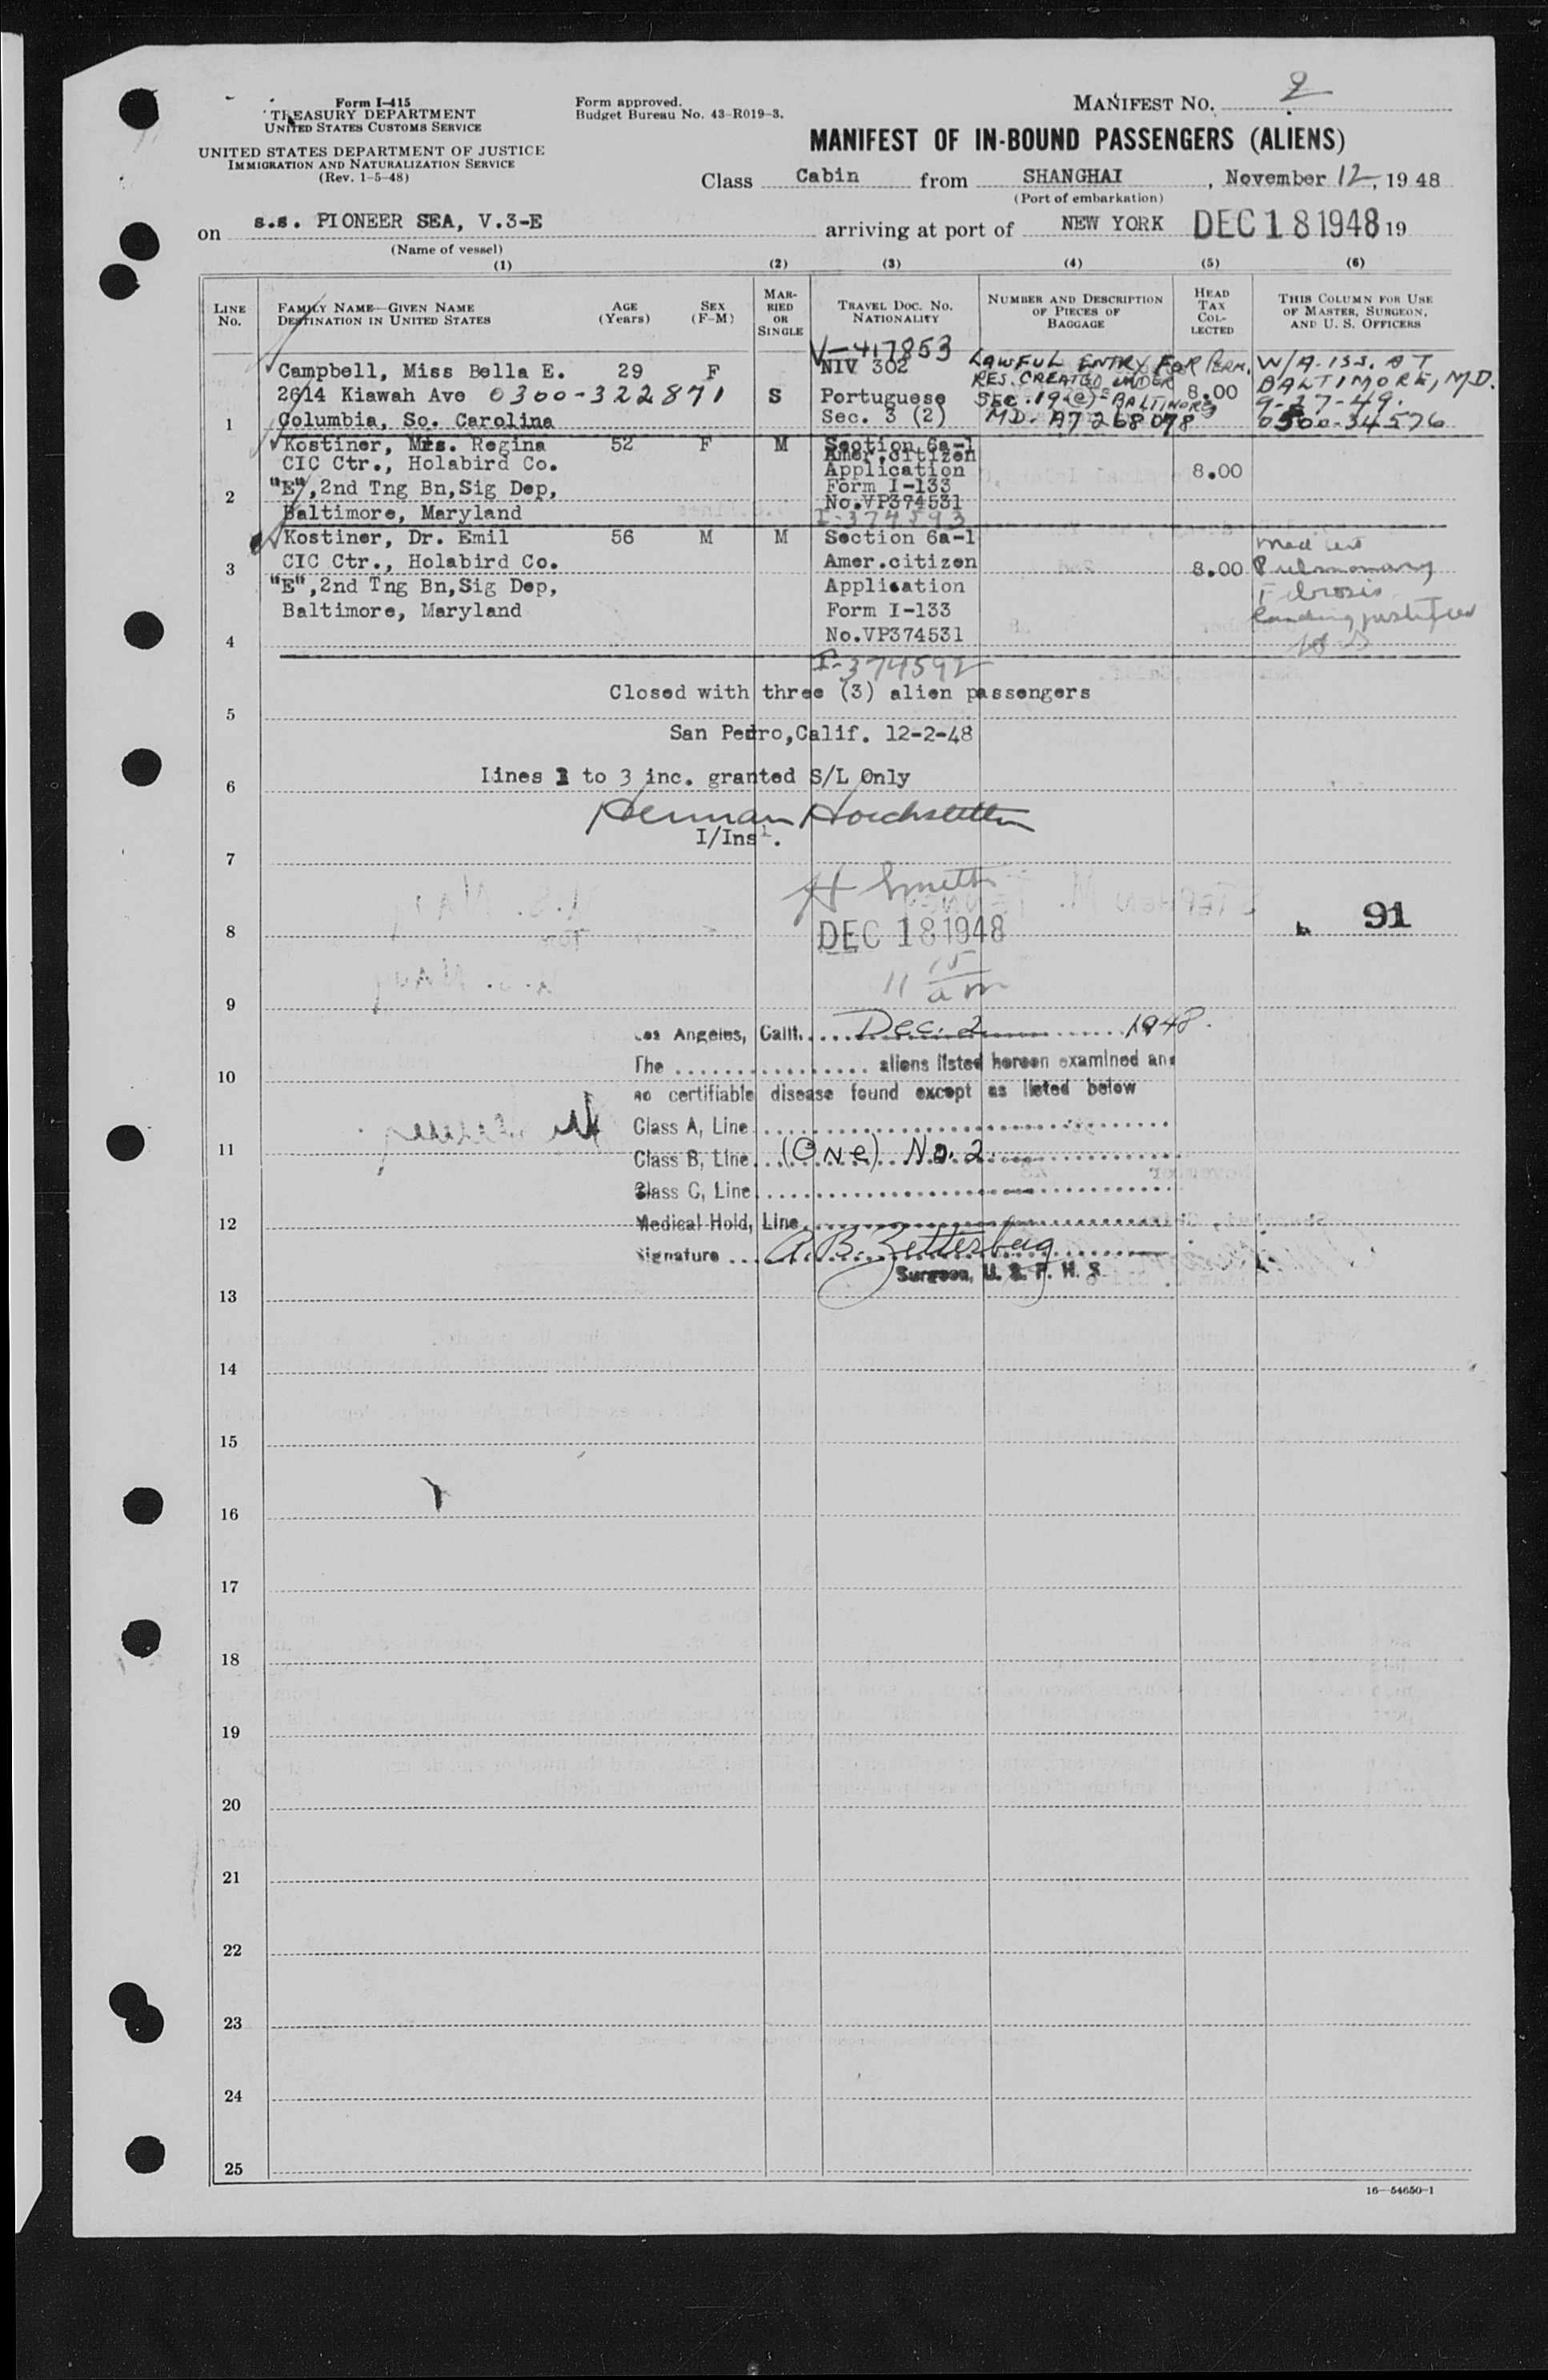 Form I-415
TREASURY DEPARTMENT
UNITED STATES CUSTOMS SERVICE
UNITED STATES DEPARTMENT OF JUSTICE
IMMIGRATION AND NATURALIZATION SERVICE
(Rev. 1-5-48)
Form approved.
Budget Bureau No. 43-R019-3.
MANIFEST NO. 2
MANIFEST OF IN-BOUND PASSENGERS (ALIENS)
Class Cabin from SHANGHAI, November 12, 1948
(Port of embarkation)
on s.s. PIONEER SEA, V.3-E arriving at port of NEW YORK DEC 18 1948 19
(Name of vessel)
(1) (2) (3) (4) (5) (6)
LINE No.
FAMILY NAME—GIVEN NAME
DESTINATION IN UNITED STATES
AGE (Years)
SEX (F-M)
MARRIED OR SINGLE
TRAVEL DOC. NO. NATIONALITY
NUMBER AND DESCRIPTION OF PIECES OF BAGGAGE
HEAD TAX COLLECTED
THIS COLUMN FOR USE OF MASTER, SURGEON, AND U. S. OFFICERS
V-417853
Campbell, Miss Bella E. 29 F NIV 302 LAWFUL ENTRY FOR PERM. W/A. ISS. AT
2614 Kiawah Ave 0300-322871 S Portuguese RES. CREATED UNDER 8.00 BALTIMORE, MD.
1 Columbia, So. Carolina Sec. 3 (2) SEC. 19(c) BALTIMORE MD. A7268078 9-27-49. 0500-34576
Kostiner, Mrs. Regina 52 F M Section 6a-1
Amer.citizen
CIC Ctr., Holabird Co. Application 8.00
2 "E",2nd Tng Bn,Sig Dep, Form I-133
No.VP374531
Baltimore, Maryland I-374593
Kostiner, Dr. Emil 56 M M Section 6a-1
3 CIC Ctr., Holabird Co. Amer.citizen 8.00
"E",2nd Tng Bn,Sig Dep, Application
Baltimore, Maryland Form I-133
4 No.VP374531
Med cert
Pulmonary
Fibrosis
landing justified
I-374592
Closed with three (3) alien passengers
5
San Pedro,Calif. 12-2-48
6 Lines 1 to 3 inc. granted S/L Only
Herman Hoichstetter
I/Inst.
7
H Smith
8 DEC 18 1948 91
11 15 am
9
Los Angeles, Calif. Dec. 2 1948.
The aliens listed hereon examined and
10
no certifiable disease found except as listed below
Class A, Line
11
Class B, Line (One) No. 2
Class C, Line
12 Medical Hold, Line
Signature A. B. Zetterberg
Surgeon, U. S. P. H. S.
13
14
15
16
17
18
19
20
21
22
23
24
25
16—54650-1